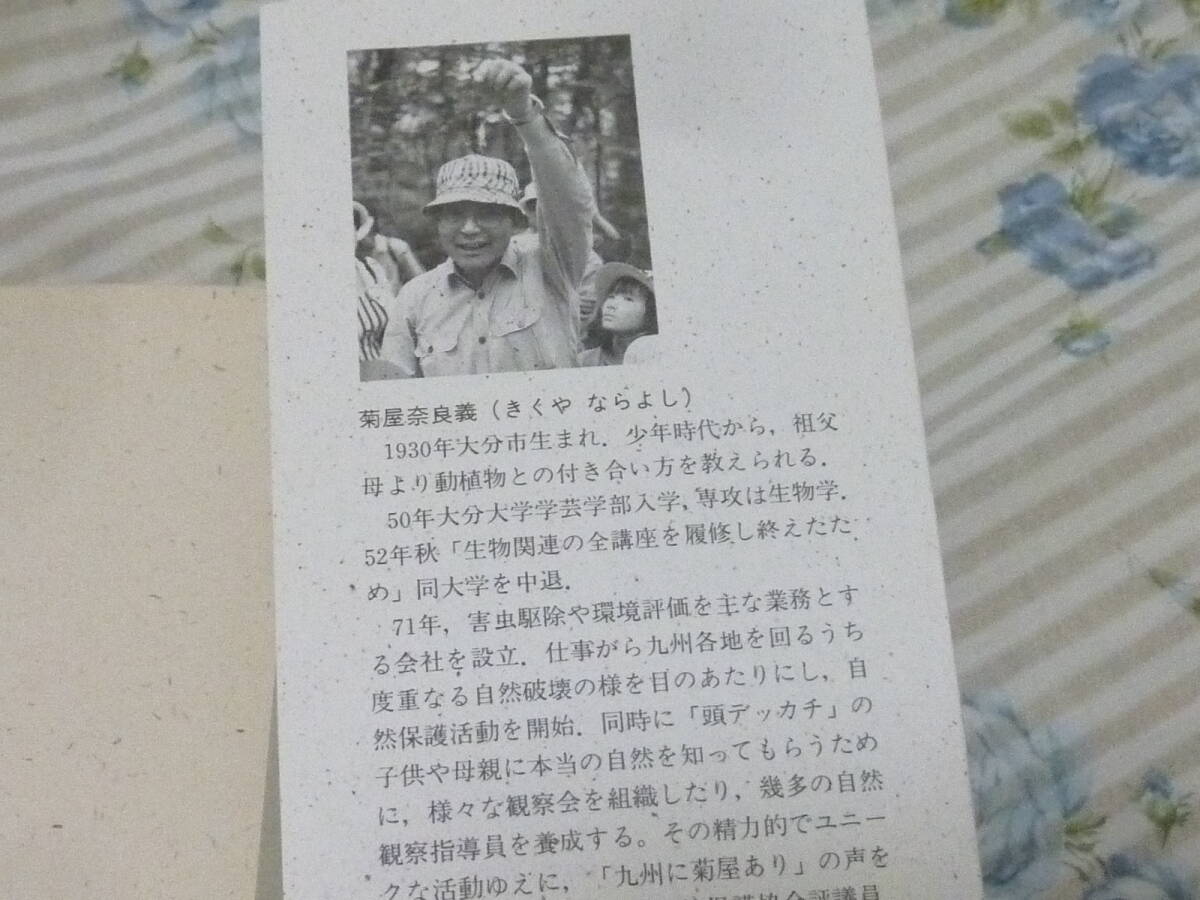 菊屋奈良義(きくや ならよし)
1930年大分市生まれ．少年時代から，祖父
母より動植物との付き合い方を教えられる．
50年大分大学学芸学部入学，専攻は生物学．
52年秋「生物関連の全講座を履修し終えたた
め」同大学を中退．
71年，害虫駆除や環境評価を主な業務とす
る会社を設立．仕事がら九州各地を回るうち
度重なる自然破壊の様を目のあたりにし，自
然保護活動を開始．同時に「頭デッカチ」の
子供や母親に本当の自然を知ってもらうため
に，様々な観察会を組織したり，幾多の自然
観察指導員を養成する。その精力的でユニー
クな活動ゆえに，「九州に菊屋あり」の声を
保護協会評議員